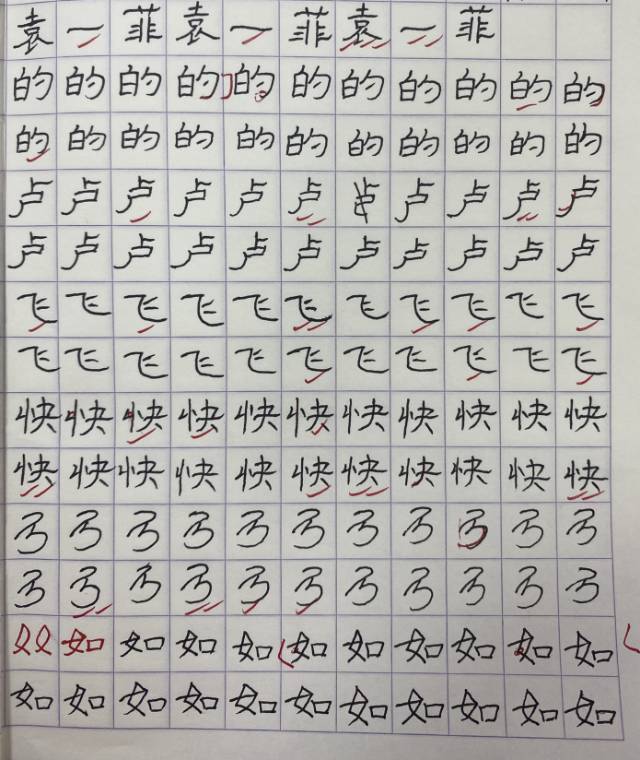 袁一菲袁一菲袁一菲
的的的的的的的的的的的
的的的的的的的的的的的
卢卢卢卢卢卢卢卢卢卢
卢卢卢卢卢卢卢卢卢卢卢
飞飞飞飞飞飞飞飞飞飞飞
飞飞飞飞飞飞飞飞飞飞飞
快快快快快快快快快快快
快快快快快快快快快快快
弓弓弓弓弓弓弓弓弓弓弓
弓弓弓弓弓弓弓弓弓弓弓
如如如如如如如如如如
如如如如如如如如如如如